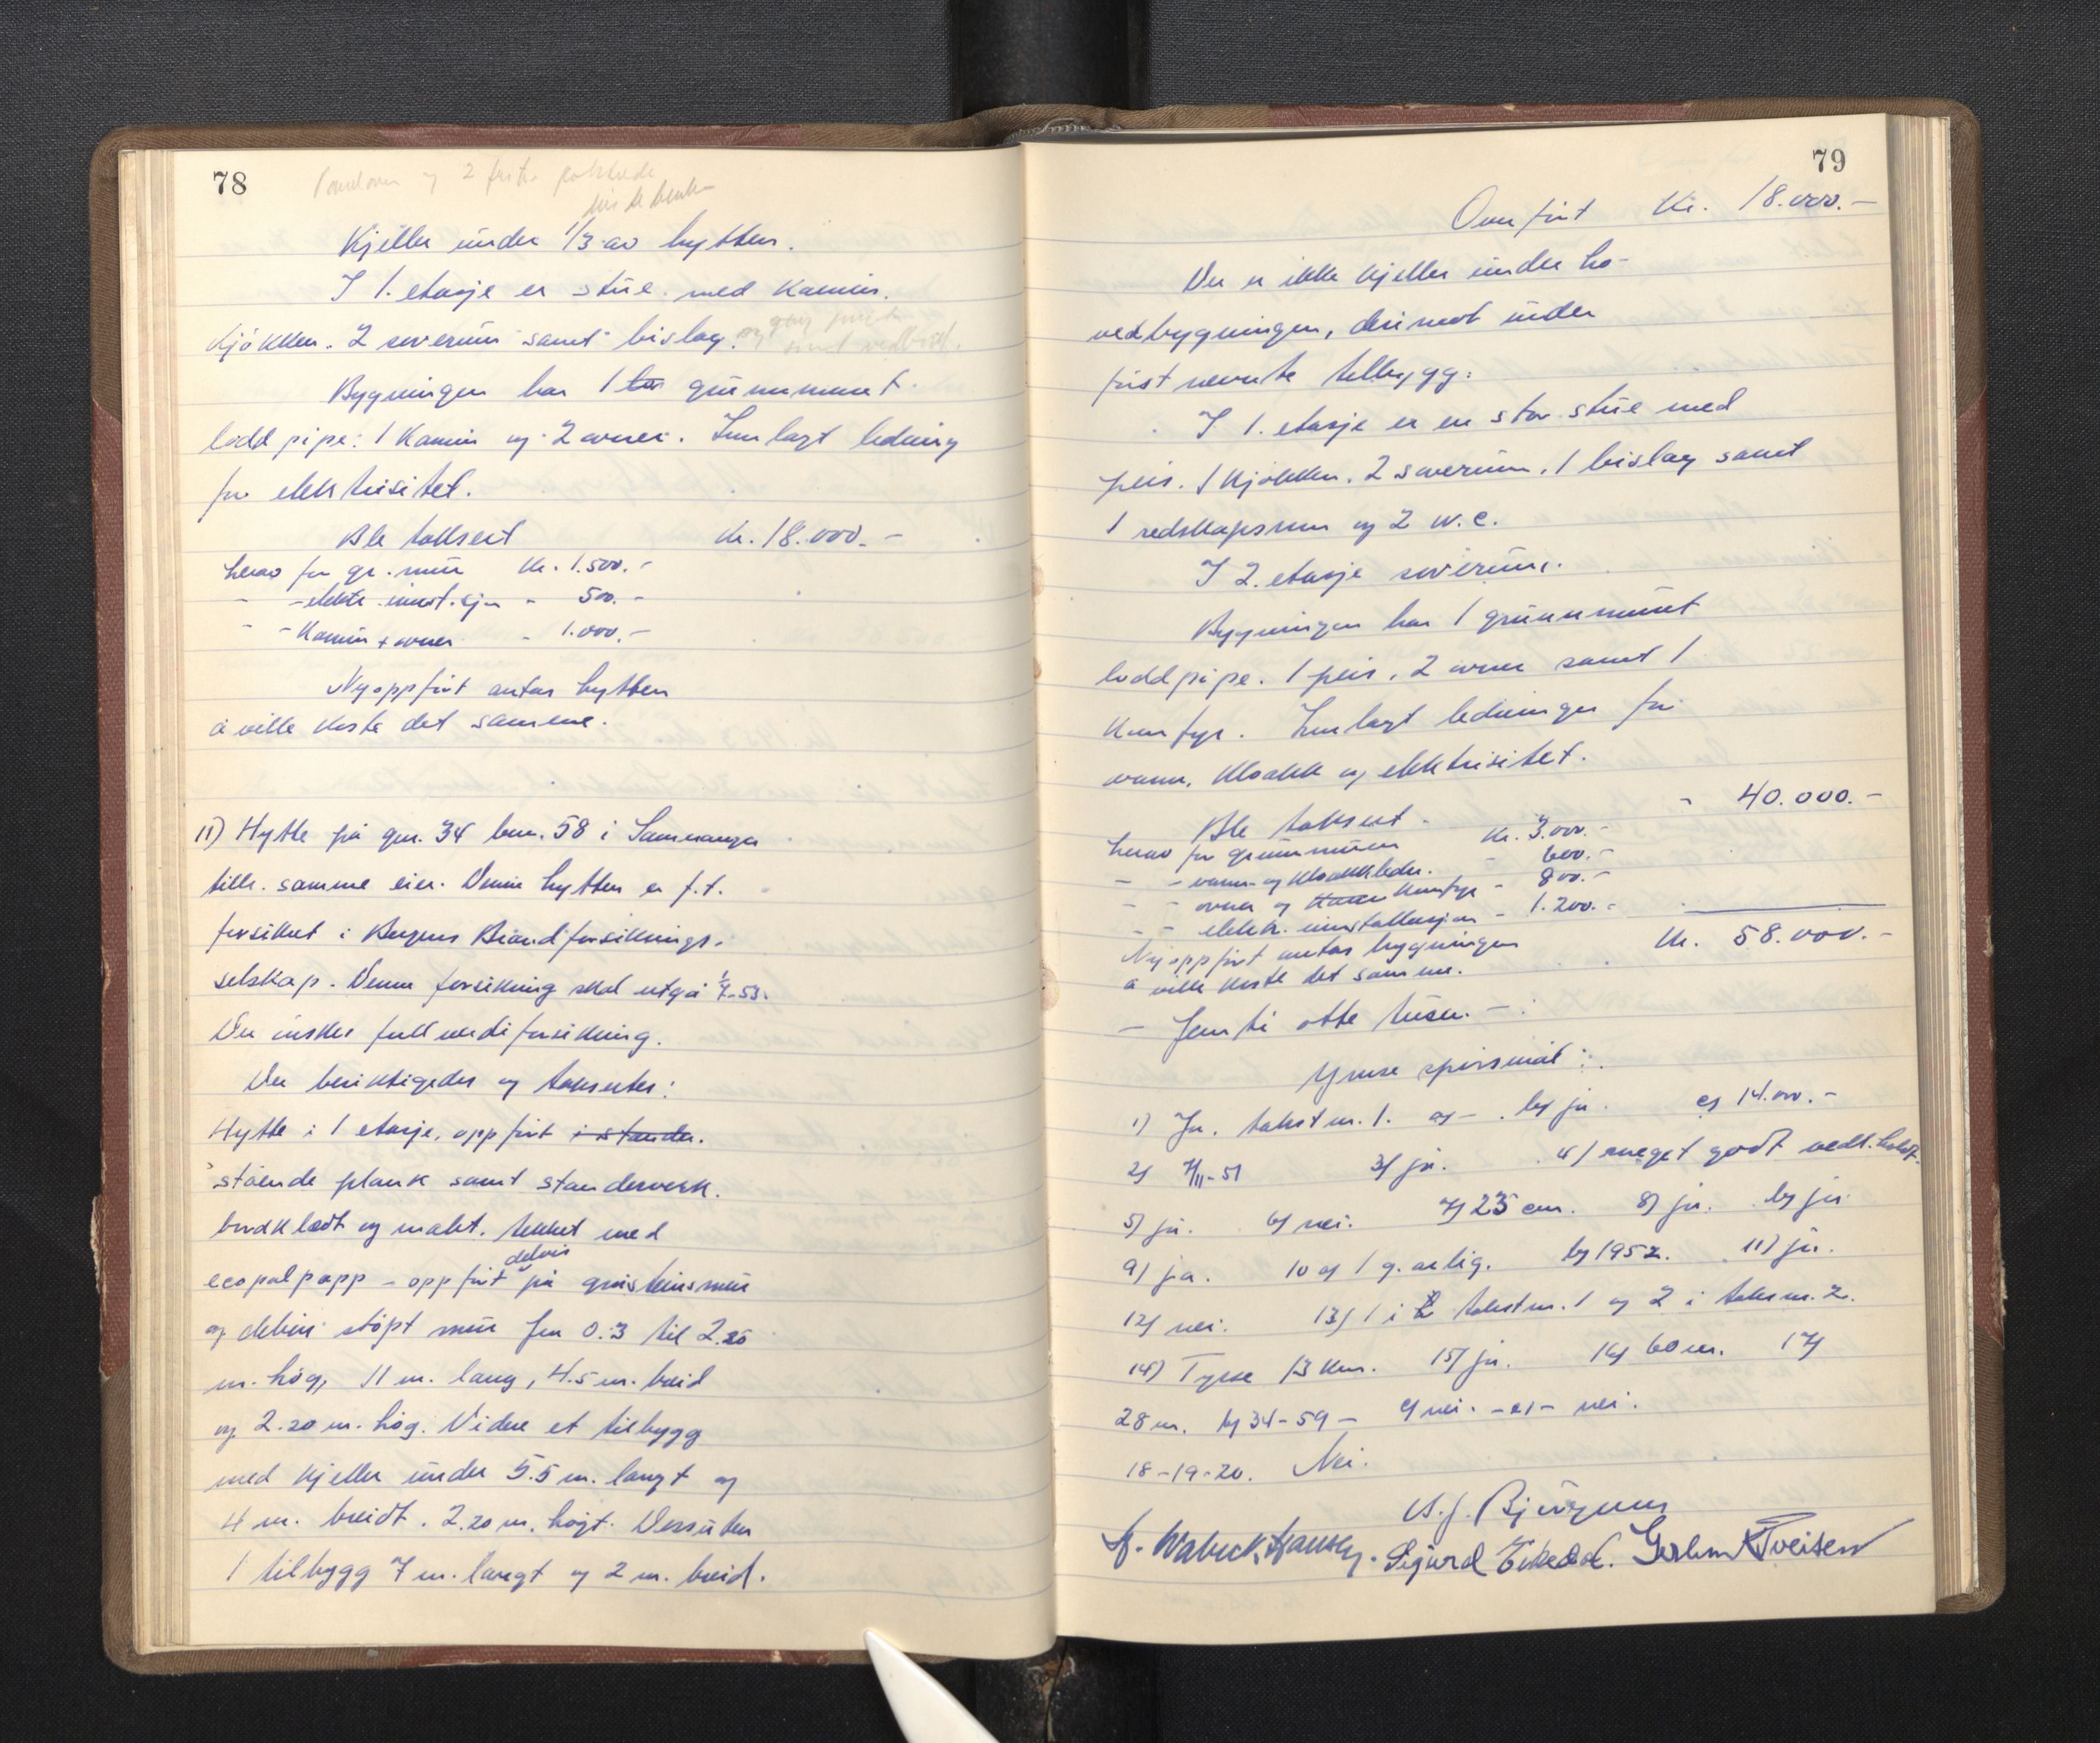 78
og 2
Kjeller under 1/3 av hytten.
I 1. etasje er stue med kamin.
Kjøkken. 2 soverum samt bislag. og gang
Bygningen har 1 grunnmuret
loddpipe: 1 Kamin og 2 ovner. Innlagt ledning
for elektrisitet.
Ble taksert Kr. 18.000.-
herav for gr. mur Kr. 1.500.-
- - elektr. inst.sjon - 500.-
- - Kamin + ovner - 1.000.-
Nyoppført antas hytten
å ville koste det samme.
11) Hytte på gnr. 34 bnr. 58 i Samnanger
tilh. samme eier. Denne hytten er f.t.
forsikret i Bergens Brandforsiknings-
selskap. Denne forsikring skal utgå 1/7-53.
Der ønskes full verdiforsikring.
Der besiktigedes og taksertes:
Hytte i 1 etasje, oppført i stander.
stående plank samt standerverk.
bordklædt og malt. tekket med
delvis
ecopalpapp - oppført på gråsteinsmur
og delvis støpt mur fra 0.3 til 2.20
m. høg, 11 m. lang, 4.5 m. breid
og 2.20 m. høg. Videre et tilbygg
med kjeller under 5.5 m. langt og
4 m. breidt. 2.20 m. høgt. Dessuten
1 tilbygg 7 m. langt og 2 m. breid.
79
Overført Kr. 18.000.-
Der er ikke kjeller under ho-
vedbygningen, derimot under
først nevnte tilbygg:
I 1. etasje er en stor stue med
peis. 1 Kjøkken. 2 soverum. 1 bislag samt
1 redskapsrum og 2 w.c.
I 2. etasje soverum.
Bygningen har 1 grunnmuret
loddpipe. 1 peis. 2 ovner samt 1
Komfyr. Innlagt ledninger for
vann, kloakk og elektrisitet.
Ble taksert - - 40.000.-
herav for grunnmuren Kr. 3.000.-
- - vann- og kloakkledn. - 600.-
- - ovner og Komfyr - 800.-
- - elektr. installasjon - 1.200.-
Nyoppført antas bygningen Kr. 58.000.-
å ville koste det samme.
- Femti otte tusen. -
Ymse spørsmål:
1) Ja. takst nr. 1. a) - . b) ja. c) 14.000.-
2) 7/11-51 3) ja. 4) meget godt vedl.holdt.
5) ja. 6) nei. 7) 25 cm. 8) ja. b) ja.
9) ja. 10 a) 1 g. årlig. b) 1952. 11) ja.
12) nei. 13) 1 i takst nr. 1 og 2 i takst nr. 2.
14) Tysse 13 km. 15) ja. 16) 60 m. 17)
28 m. b) 34-59- c) nei. -d- nei.
18-19-20. Nei.
Sigurd Gerhm K Tveiten